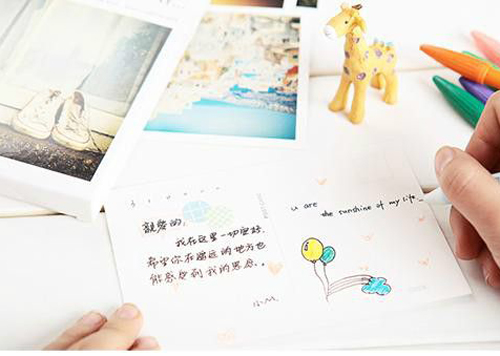 親愛的,
我在这里一切安好.
希望你在遥远的地方也
能感受到我的思念.
小M.
u are
the sunshine of my life.